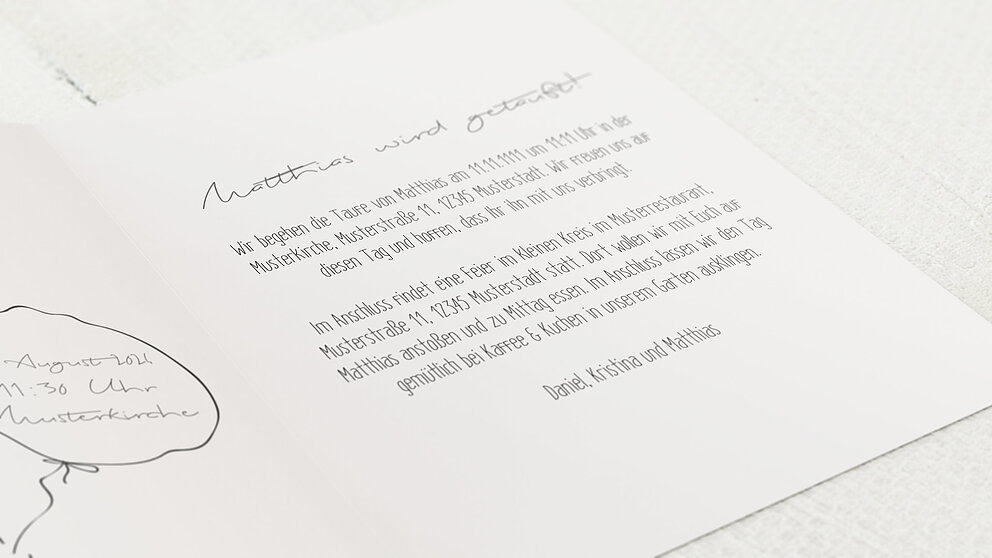 August 2026
11:30 Uhr
Musterkirche
Matthias wird getauft
Wir begehen die Taufe von Matthias am 11.11.1111 um 11:11 Uhr in der
Musterkirche, Musterstraße 11, 12345 Musterstadt. Wir freuen uns auf
diesen Tag und hoffen, dass Ihr ihn mit uns verbringt.
Im Anschluss findet eine Feier im kleinen Kreis im Musterrestaurant,
Musterstraße 11, 12345 Musterstadt statt. Dort wollen wir mit Euch auf
Matthias anstoßen und zu Mittag essen. Im Anschluss lassen wir den Tag
gemütlich bei Kaffee & Kuchen in unserem Garten ausklingen.
Daniel, Kristina und Matthias